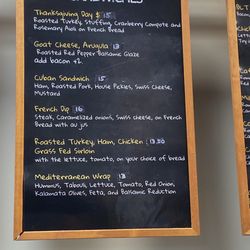 SANDWICHES
Thanksgiving Day $ 15
Roasted Turkey, Stuffing, Cranberry Compote and
Rosemary Aioli on French Bread
Goat Cheese, Arugula 13
Roasted Red Pepper Balsamic Glaze
add bacon +2.
Cuban Sandwich 15
Ham, Roasted Pork, House Pickles, Swiss Cheese,
Mustard
French Dip 16
Steak, Caramelized onions, Swiss cheese, on French
Bread with au jus
Roasted Turkey, Ham, Chicken 13.50
Grass Fed Sirloin
with the lettuce, tomato, on your choice of bread
Mediterranean Wrap 13
Hummus, Tabouli, Lettuce, Tomato, Red Onion,
Kalamata Olives, Feta, and Balsamic Reduction